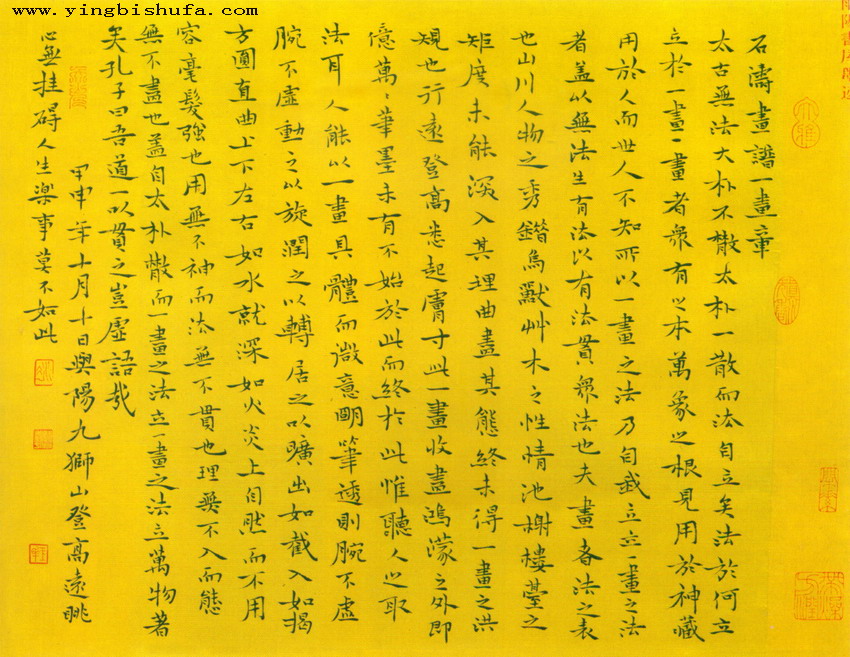 www.yingbishufa.com
石濤畫譜一畫章
太古無法太朴不散太朴一散而法自立矣法於何立
立於一畫一畫者衆有之本萬象之根見用於神藏
用於人而世人不知所以一畫之法乃自我立立一畫之法
者盖以無法生有法以有法貫衆法也夫畫者法之表
也山川人物之秀錯鳥獸艸木之性情池榭樓臺之
矩度未能深入其理曲盡其態終未得一畫之洪
規也行遠登高悉起膚寸此一畫收盡鴻濛之外即
億萬萬筆墨未有不始於此而終於此惟聽人之取
法耳人能以一畫具體而微意明筆透則腕不虛
腕不虛動之以旋潤之以轉居之以曠出如截入如揭
方圓直曲上下左右如水就深如火炎上自然而不用
容毫髮强也用無不神而法無不貫也理無不入而態
無不盡也盖自太朴散而一畫之法立一畫之法立萬物著
矣孔子曰吾道一以貫之豈虛語哉
甲申年十月十日與陽九獅山登高遠眺
心無挂碍人生樂事莫不如此